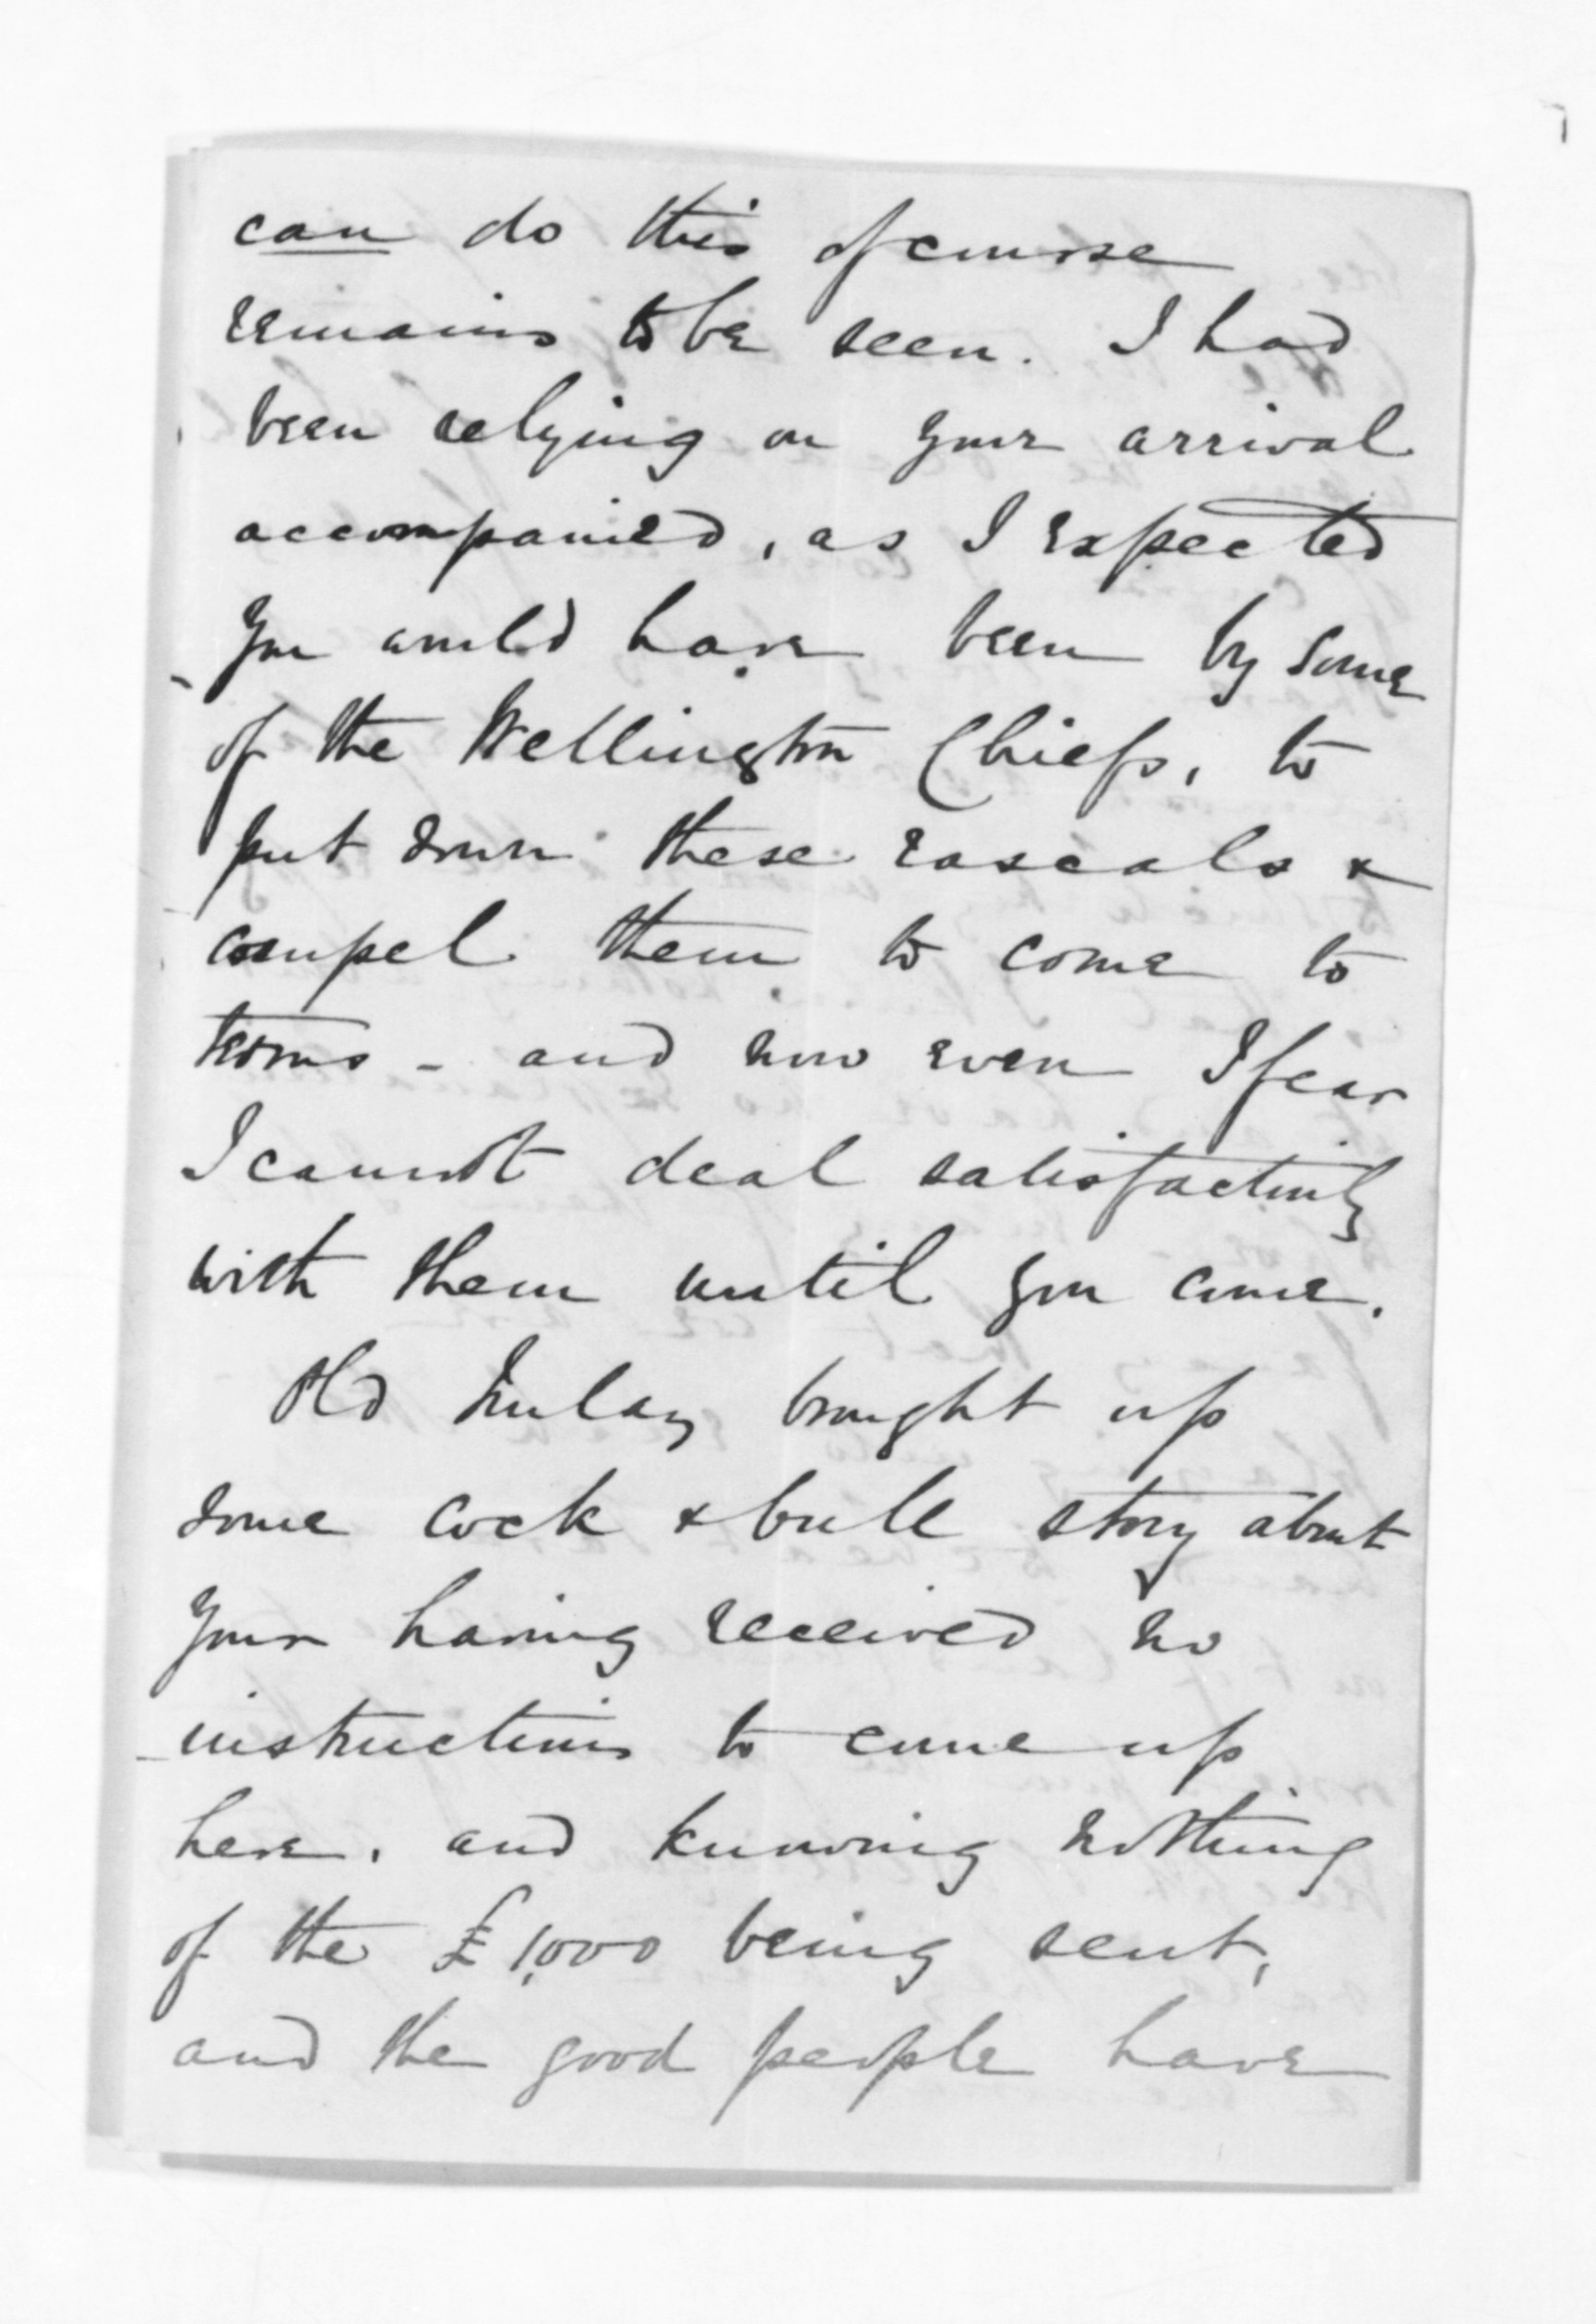 can do this of course
remains to be seen. I had
been relying on your arrival
accompanied, as I expected
you would have been by some
of the Wellington Chiefs, to
put down these rascals &
compel them to come to
terms - and now even I fear
I cannot deal satisfactorily
with them until you come.
Old brought up
some cock & bull story about
your having received no
instructions to come up
here, and knowing nothing
of the £1,000 being sent,
and the good people have